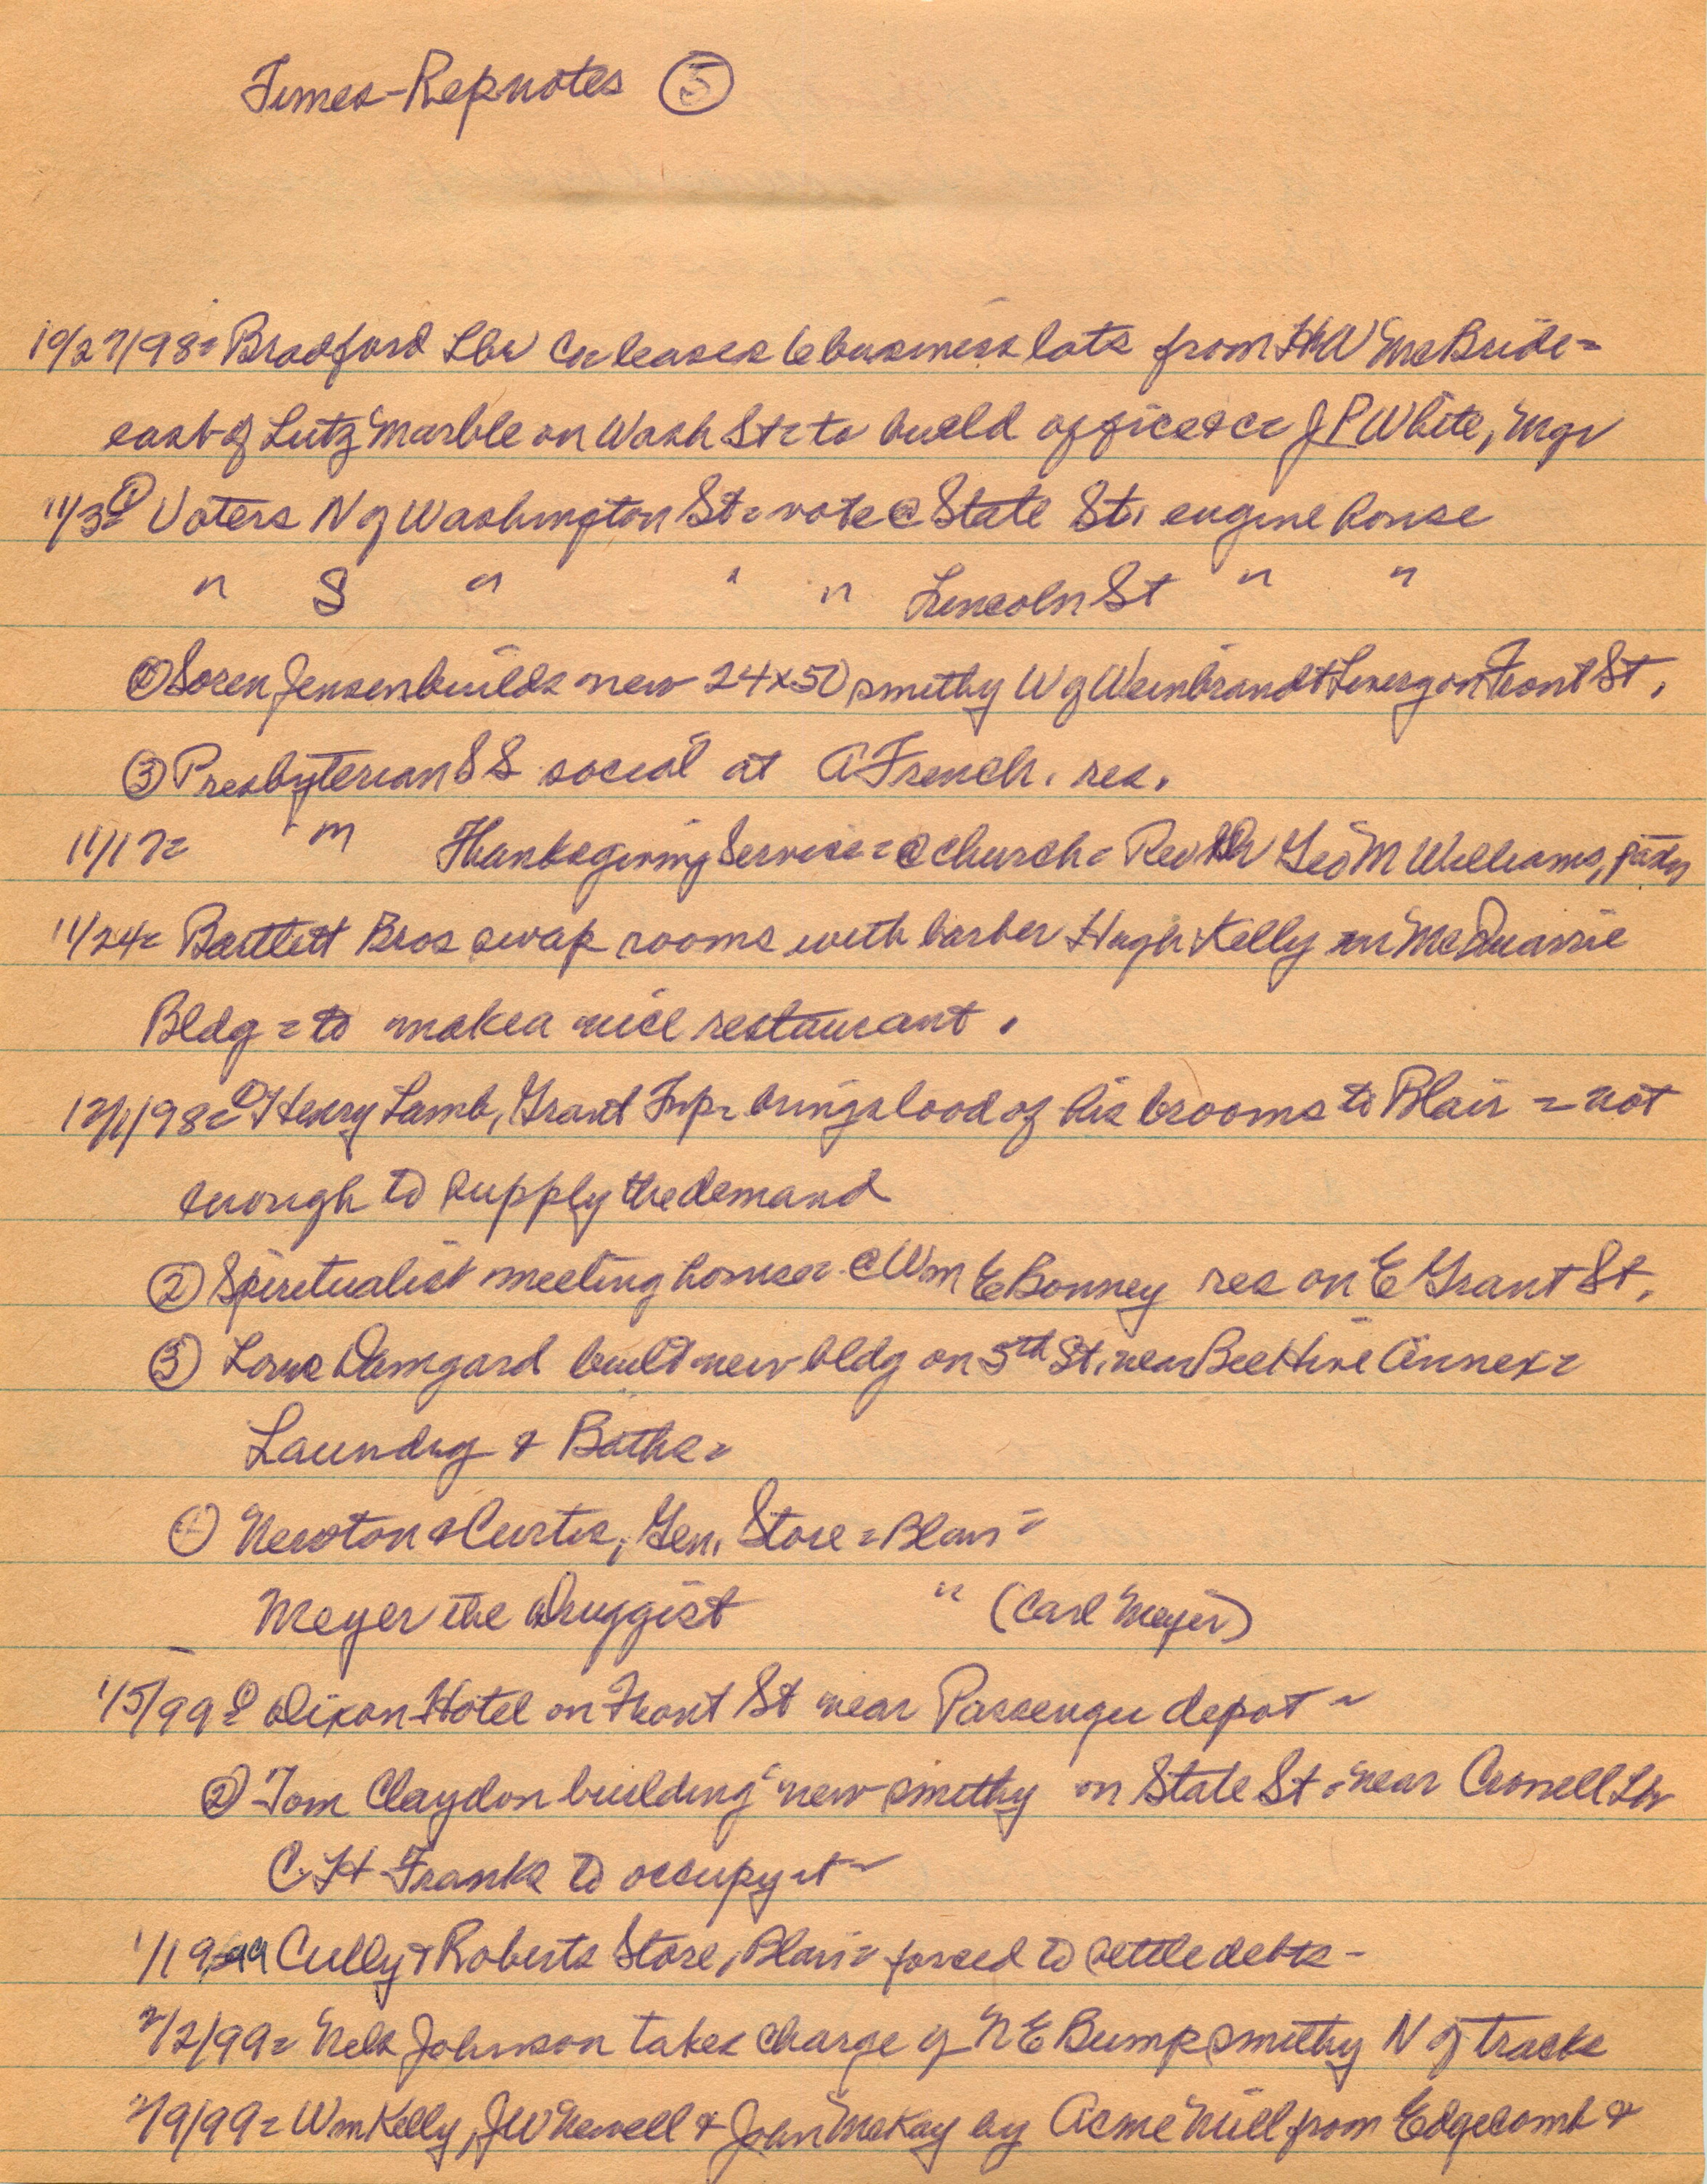 Times-Repnotes ⑤
10/27/98= Bradford Lbr Co leases 6 business lots from HW McBride=
east of Lutz Marble on Wash St= to build office &c= J P White, Mgr
11/3= ① Voters N of Washington St= vote @ State St. engine house
" S " " " Lincoln St " "
② Soren Jensen builds new 24x50 smithy W of Weinbrandt Livery on Front St.
③ Presbyterian SS social at A French. res.
11/17= " Thanksgiving Service= @ church= Rev Geo M Williams, pastor
11/24= Bartlett Bros swap rooms with barber Hugh Kelly in McQuarrie
Bldg = to make a nice restaurant.
12/1/98= ① Henry Lamb, Grant Twp= brings load of his brooms to Blair = not
enough to supply the demand
② Spiritualist meeting house= @ Wm E Bonney res on E Grant St.
③ Damgard build new bldg on 5th St. near BeeHive Annex=
Laundry & Baths=
④ Newton & Curtis, Gen. Store = Blair =
Meyer the Druggist " (Carl Meyer)
1/5/99= ① Dixon Hotel on Front St near Passenger depot -
② Tom Claydon building new smithy on State St - near Crowell Lbr
C H Franks to occupy it -
1/19-99 Cully & Roberts Store, Blair= forced to settle debts -
2/2/99= Nels Johnson takes charge of N E Bump smithy N of tracks
2/9/99= Wm Kelly, JW Newell & John McKay by Acme Mill from Edgecomb &